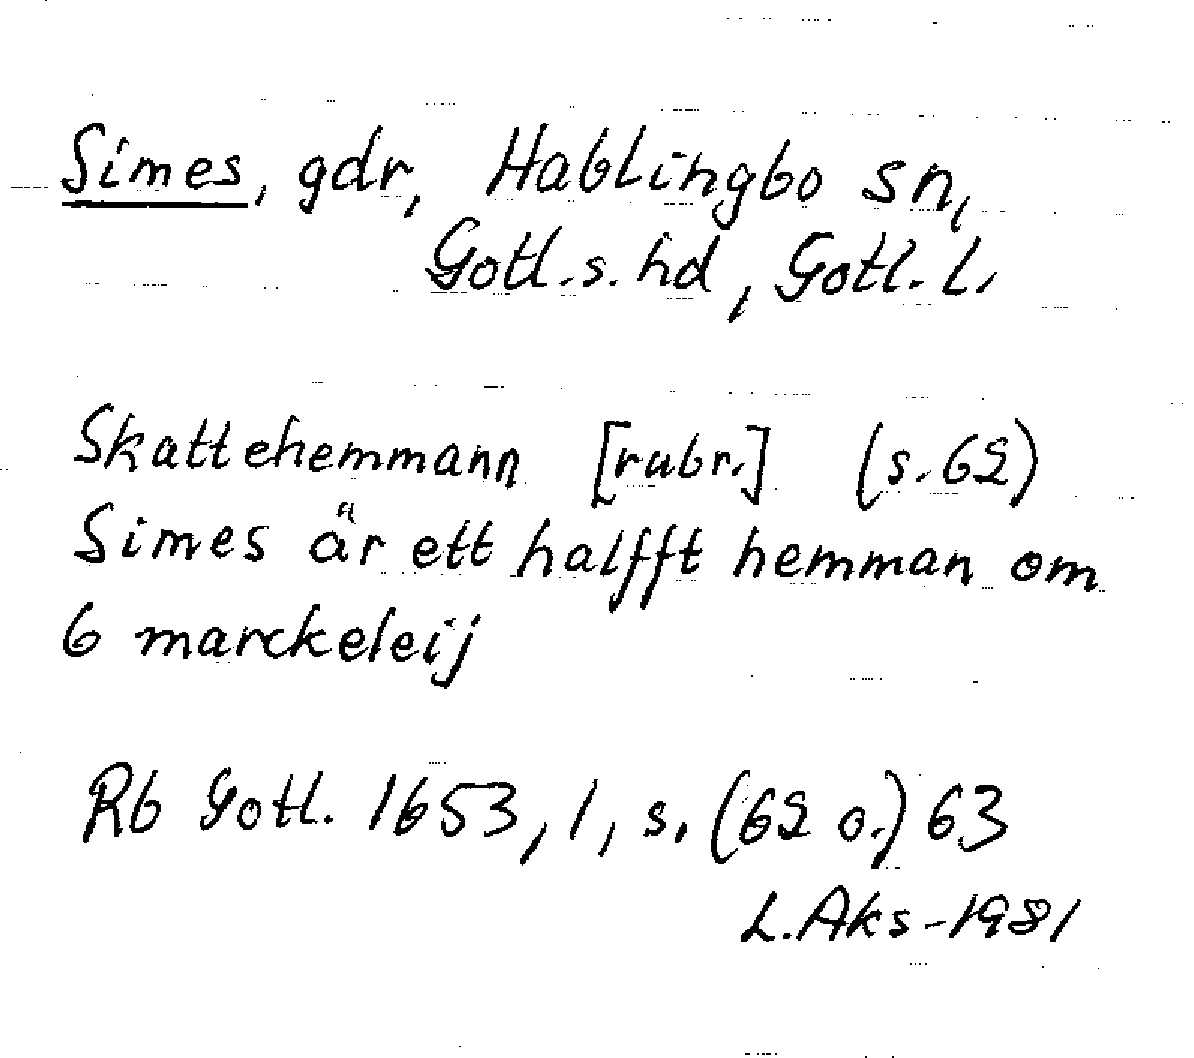 Simes, gdr, Hablingbo sn,
Gotl.s.hd, Gotl. L.
Skattehemmann [rubr.] (s.62)
Simes är ett halfft hemman om
6 marckeleij
Rb Gotl. 1653, 1, s. (62 o.) 63
L.Aks-1981